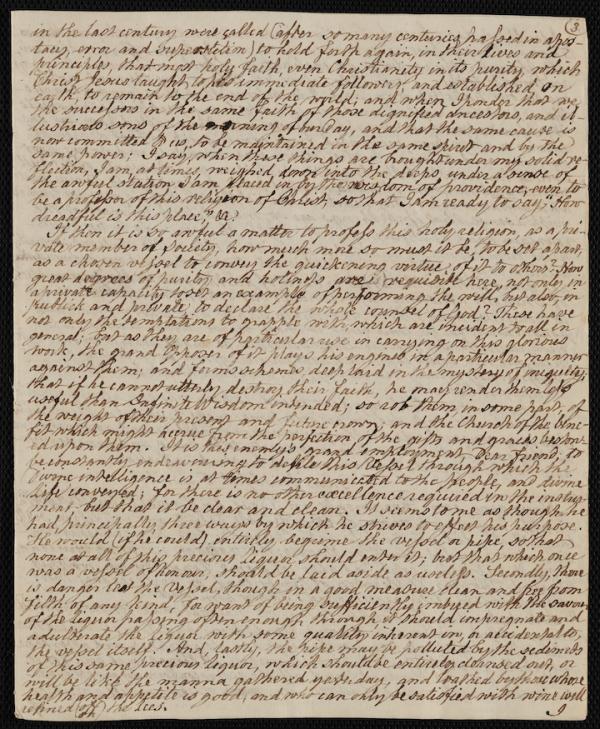 3
in the last century were called (after so many centuries passed in apos-
tacy, error and superstition) to hold forth again, in their lives and
principles, that most holy faith, even Christianity in its purity, which
Christ Jesus taught to his immediate followers and established on
earth to remain to the end of the world; and when I ponder that we
the successors in the same faith of those dignified ancestors, and il-
lustrious sons of the morning of our day, and that the same cause is
now committed to us, to be maintained in the same spirit and by the
same power; I say, when these things are brought under my solid re-
flection, I am, at times, weighed down into the deeps, under a sense of
the awful station I am placed in by the wisdom of providence, even to
be a professor of this religion of Christ, so that I am ready to say, "How
dreadful is this place" &c.
If then it is so awful a matter to profess this holy religion, as a pri-
vate member of Society, how much more so must it be, to be set apart,
as a chosen vessel to convey the quickening virtue of it to others? How
great degrees of purity and holiness are requisite here, not only in
a private capacity to set an example of performing the well, but also, in
publick and private, to declare the whole counsel of God? These have
not only the temptations to grapple with, which are incident to all in
general; but as they are of particular use in carrying on this glorious
work, the grand Opposer of it plays his engines in a particular manner
against them; and forms schemes deep laid in the mystery of iniquity,
that if he cannot utterly destroy their faith, he may render them less
useful than Infinite Wisdom intended; so rob them, in some part, of
the weight of their present and future crown; and the Church of the bene-
fit which might accrue from the perfection of the gifts and graces bestow-
ed upon them. It is this enemy's grand employment, Dear Friend, to
be constantly endeavouring to defile this Vessel through which the
Divine intelligence is at times communicated to the people, and divine
Life conveyed; for there is no other excellence required in the instru-
ment but that it be clear and clean. It seems to me as though he
had principally three ways by which he strives to effect his purpose.
He would (if he could) entirely begrime the vessel or pipe, so that
none at all of this precious liquor should enter it; but that which once
was a vessel of honour, should be laid aside as useless. Secondly, there
is danger lest the Vessel, though in a good measure clean and free from
filth of any kind, for want of being sufficiently imbued with the savour
of the liquor passing often enough through it should impregnate and
adulterate the liquor with some quality inherent in, or accidental to,
the vessel itself. And, lastly, the pipe may be polluted by the sediments
of this same precious liquor, which should be entirely cleansed out, or
will be like the manna gathered yesterday, and loathed by those whose
health and appetite is good, and who can only be satisfied with wine well
refined off the lees.
I